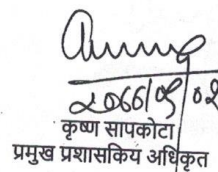 २०७७/०९/०२
कृष्ण सापकोटा
प्रमुख प्रशासकिय अधिकृत